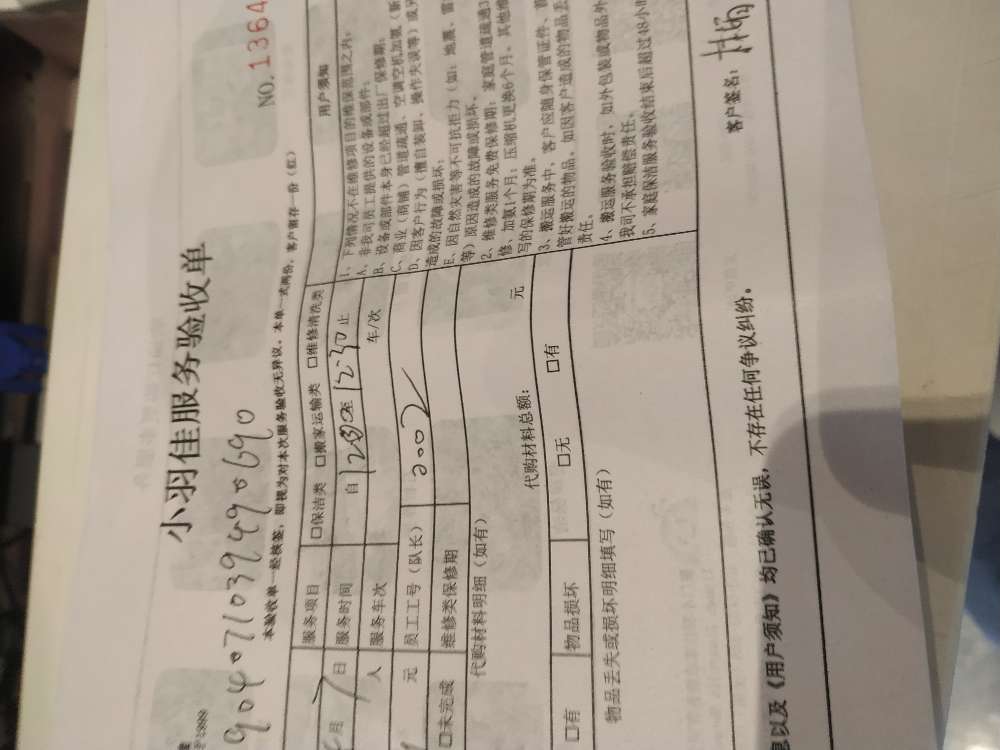 小羽佳服务验收单
NO.1364
9040710394940690
本验收单一经核签,即视为对本次服务验收无异议。本单一式两份,客户留存一份(红)
服务项目 □保洁类 □搬家运输类 □维修清洗类
7 日 服务时间 自 至 12:30 止
人 服务车次 车/次
元 员工工号(队长) 2002
□未完成 维修类保修期
代购材料明细(如有) 代购材料总额: 元
□有 物品损坏 □无 □有
物品丢失或损坏明细填写(如有)
用户须知
1、下列情况不在维修项目的维保范围之内:
A、非我司员工提供的设备或部件;
B、设备或部件本身已经超过出厂保修期;
C、商业(商铺)管道疏通、空调空机加氨(新
D、因客户行为(擅自装卸、操作失误等)或另
造成的故障或损坏;
E、因自然灾害等不可抗拒力(如:地震、雷
等)原因造成的故障或损坏。
2、维修类服务免费保修期:家庭管道疏通3
修、加氨1个月;压缩机更换6个月。其他维
写的保修期为准。
3、搬运服务中,客户应随身保管证件、首
管好搬运的物品,如因客户造成的物品丢
责任。
4、搬运服务验收时,如外包装或物品外
我司不承担赔偿责任。
5、家庭保洁服务验收结束后超过48小时
客户签名:
息以及《用户须知》均已确认无误,不存在任何争议纠纷。